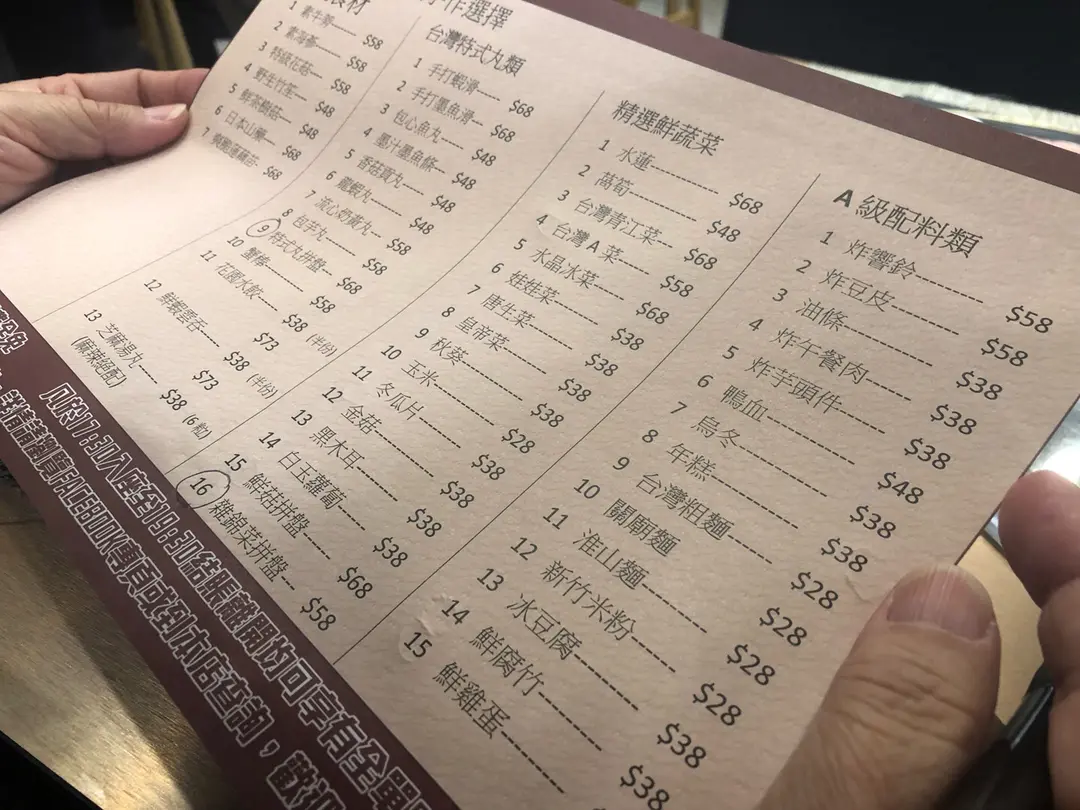 食材
1 素牛
$58
2 素海參 $58
3 特級花菇 $58
4 野生竹笙 $48
5 鮮茶樹菇 $48
6 日本山藥 $68
7 $68
作選擇
台灣特式丸類
1 手打蝦滑 $68
2 手打墨魚滑 $68
3 包心魚丸 $48
4 墨汁墨魚條 $48
5 香菇貢丸 $48
6 龍蝦丸 $48
7 流心奶黃丸 $58
8 包芋丸 $58
9 特式丸拼盤 $68
10 蟹棒 $58
11 花園水餃 $38 (半份)
$73
12 鮮蝦雲吞 $38 (半份)
$73
13 芝麻湯丸 $38 (6粒)
(麻辣絕配)
精選鮮蔬菜
1 水蓮 $68
2 萵筍 $48
3 台灣青江菜 $68
4 台灣A菜 $58
5 水晶冰菜 $68
6 娃娃菜 $38
7 唐生菜 $38
8 皇帝菜 $38
9 秋葵 $38
10 玉米 $28
11 冬瓜片 $38
12 金菇 $38
13 黑木耳 $38
14 白玉蘿蔔 $38
15 鮮菇拼盤 $68
16 雜錦菜拼盤 $58
A級配料類
1 炸響鈴 $58
2 炸豆皮 $58
3 油條 $38
4 炸午餐肉 $38
5 炸芋頭件 $38
6 鴨血 $48
7 烏冬 $38
8 年糕 $38
9 台灣粗麵 $28
10 關廟麵 $28
11 淮山麵 $28
12 新竹米粉 $28
13 冰豆腐 $38
14 鮮腐竹 $38
15 鮮雞蛋
凡於17:30入座至19:30結賬離開均可享有全單
請瀏覽FACEBOOK專頁或到本店查詢，歡迎